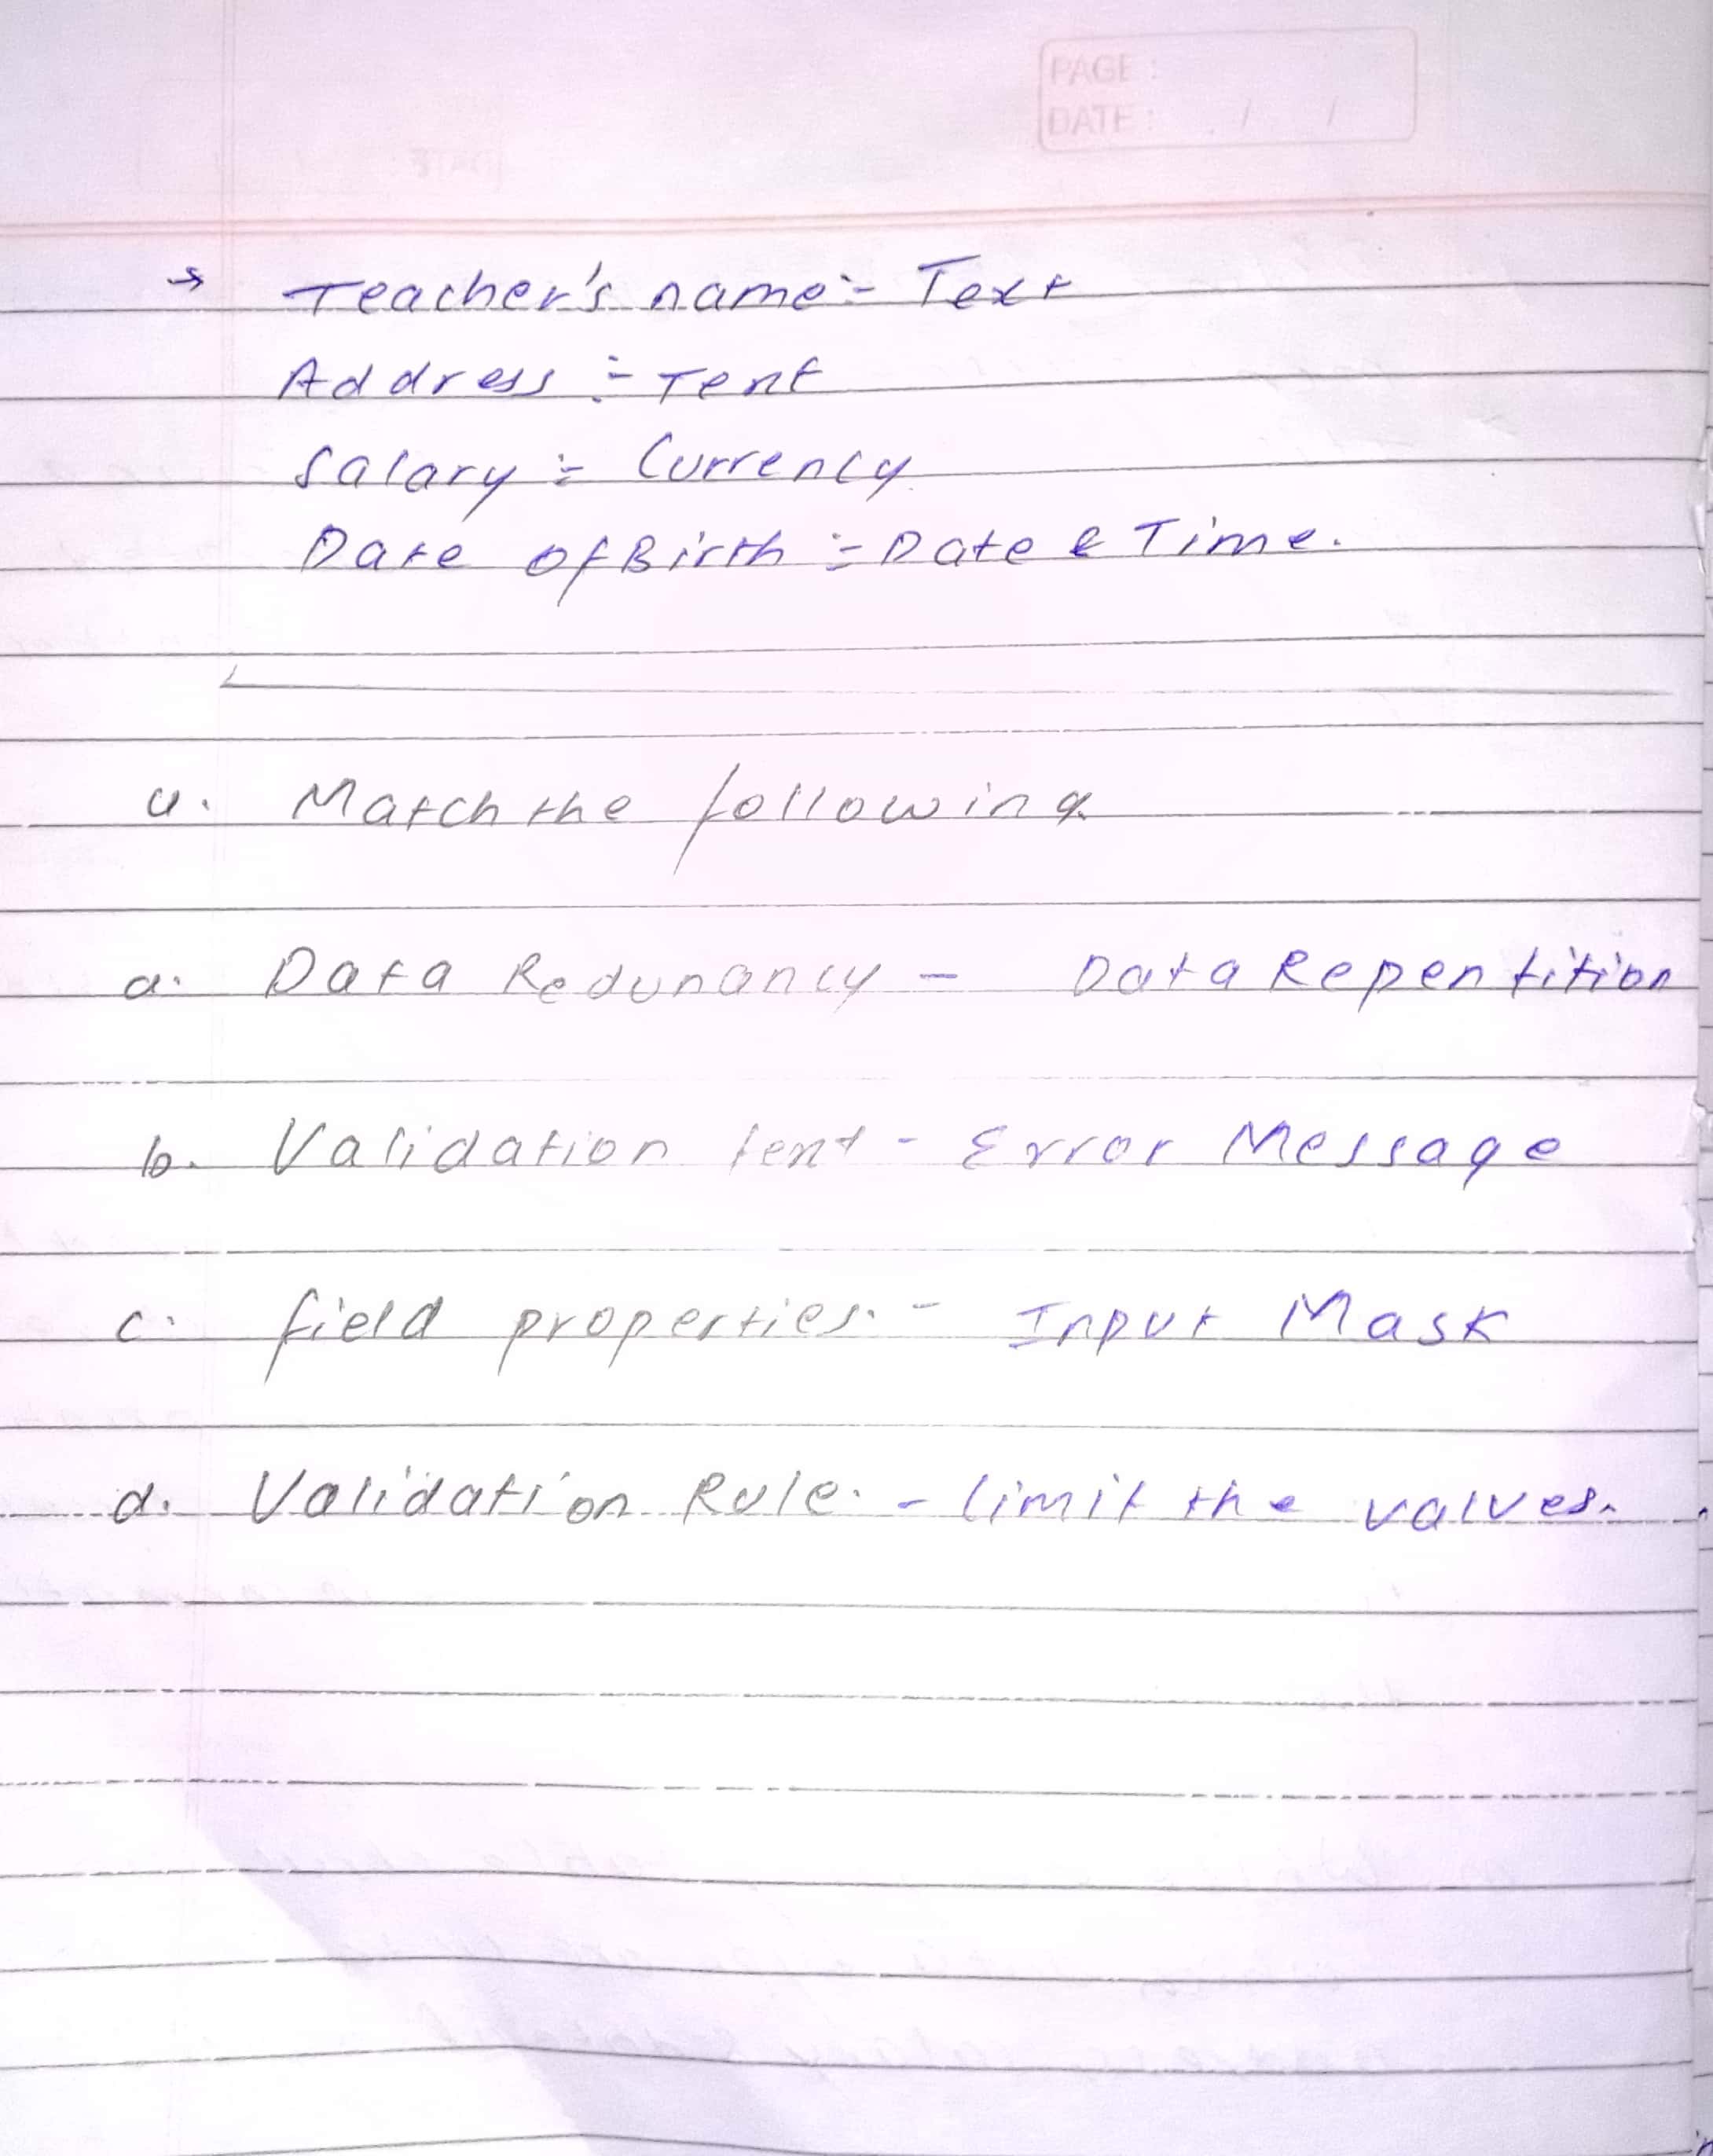 PAGE :
DATE : / /
→ Teacher's name :- Text
Address :- Text
Salary :- Currency
Date of Birth :- Date & Time.
4. Match the following
a. Data Redunancy - Data Repentition
b. Validation text - Error Message
c. field properties. - Input Mask
d. Validation Rule. - limit the values.